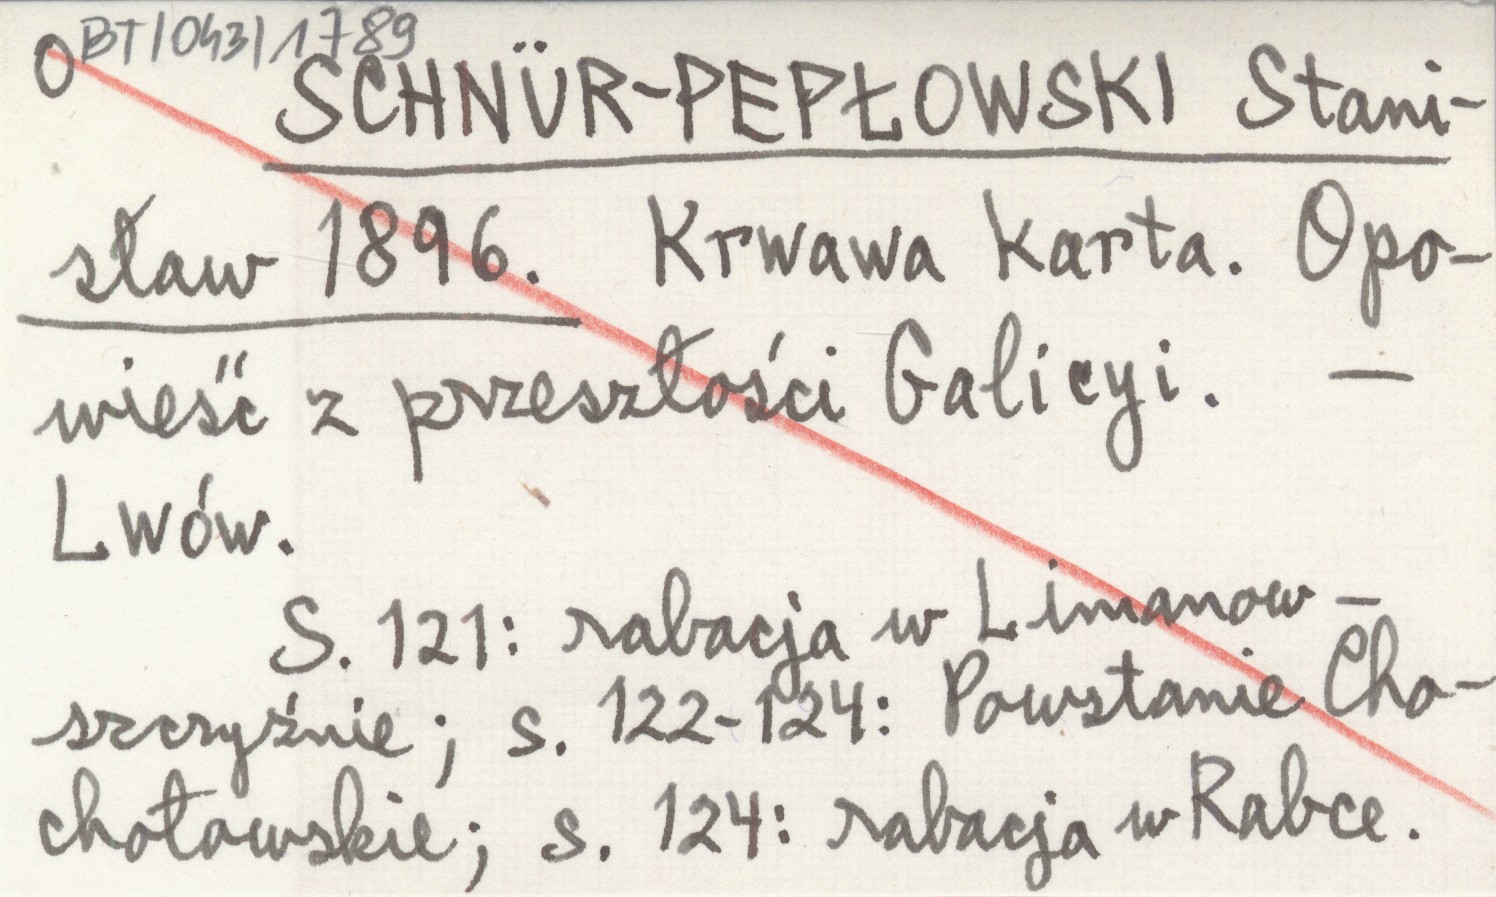 O BT/043/1789
SCHNÜR-PEPŁOWSKI Stani-
sław 1896. Krwawa karta. Opo-
wieść z przeszłości Galicyi. —
Lwów.
S. 121: rabacja w Limanow-
szczyźnie; s. 122-124: Powstanie Cho-
chołowskie; s. 124: rabacja w Rabce.